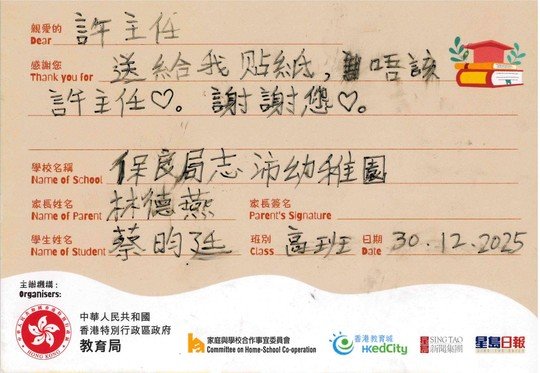 親愛的 許主任
Dear
感謝您 送給我貼紙，唔該
Thank you for
許主任♡。謝謝您♡。
學校名稱 保良局志沛幼稚園
Name of School
家長姓名 林德燕 家長簽名
Name of Parent Parent's Signature
學生姓名 蔡昀廷 班別 高班 日期 30.12.2025
Name of Student Class Date
主辦機構：
Organisers:
中華人民共和國
香港特別行政區政府
教育局
HONG KONG
家庭與學校合作事宜委員會
Committee on Home-School Co-operation
香港教育城
HKedCity
星島 SING TAO
新聞集團
星島日報